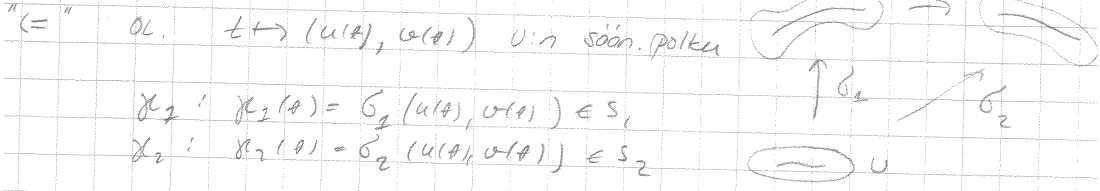 "<=" OL. t ↦ (u(t), v(t)) U:n sään. polku
γ₁ : γ₁(t) = σ₁(u(t), v(t)) ∈ S₁
γ₂ : γ₂(t) = σ₂(u(t), v(t)) ∈ S₂
σ₁
σ₂
U